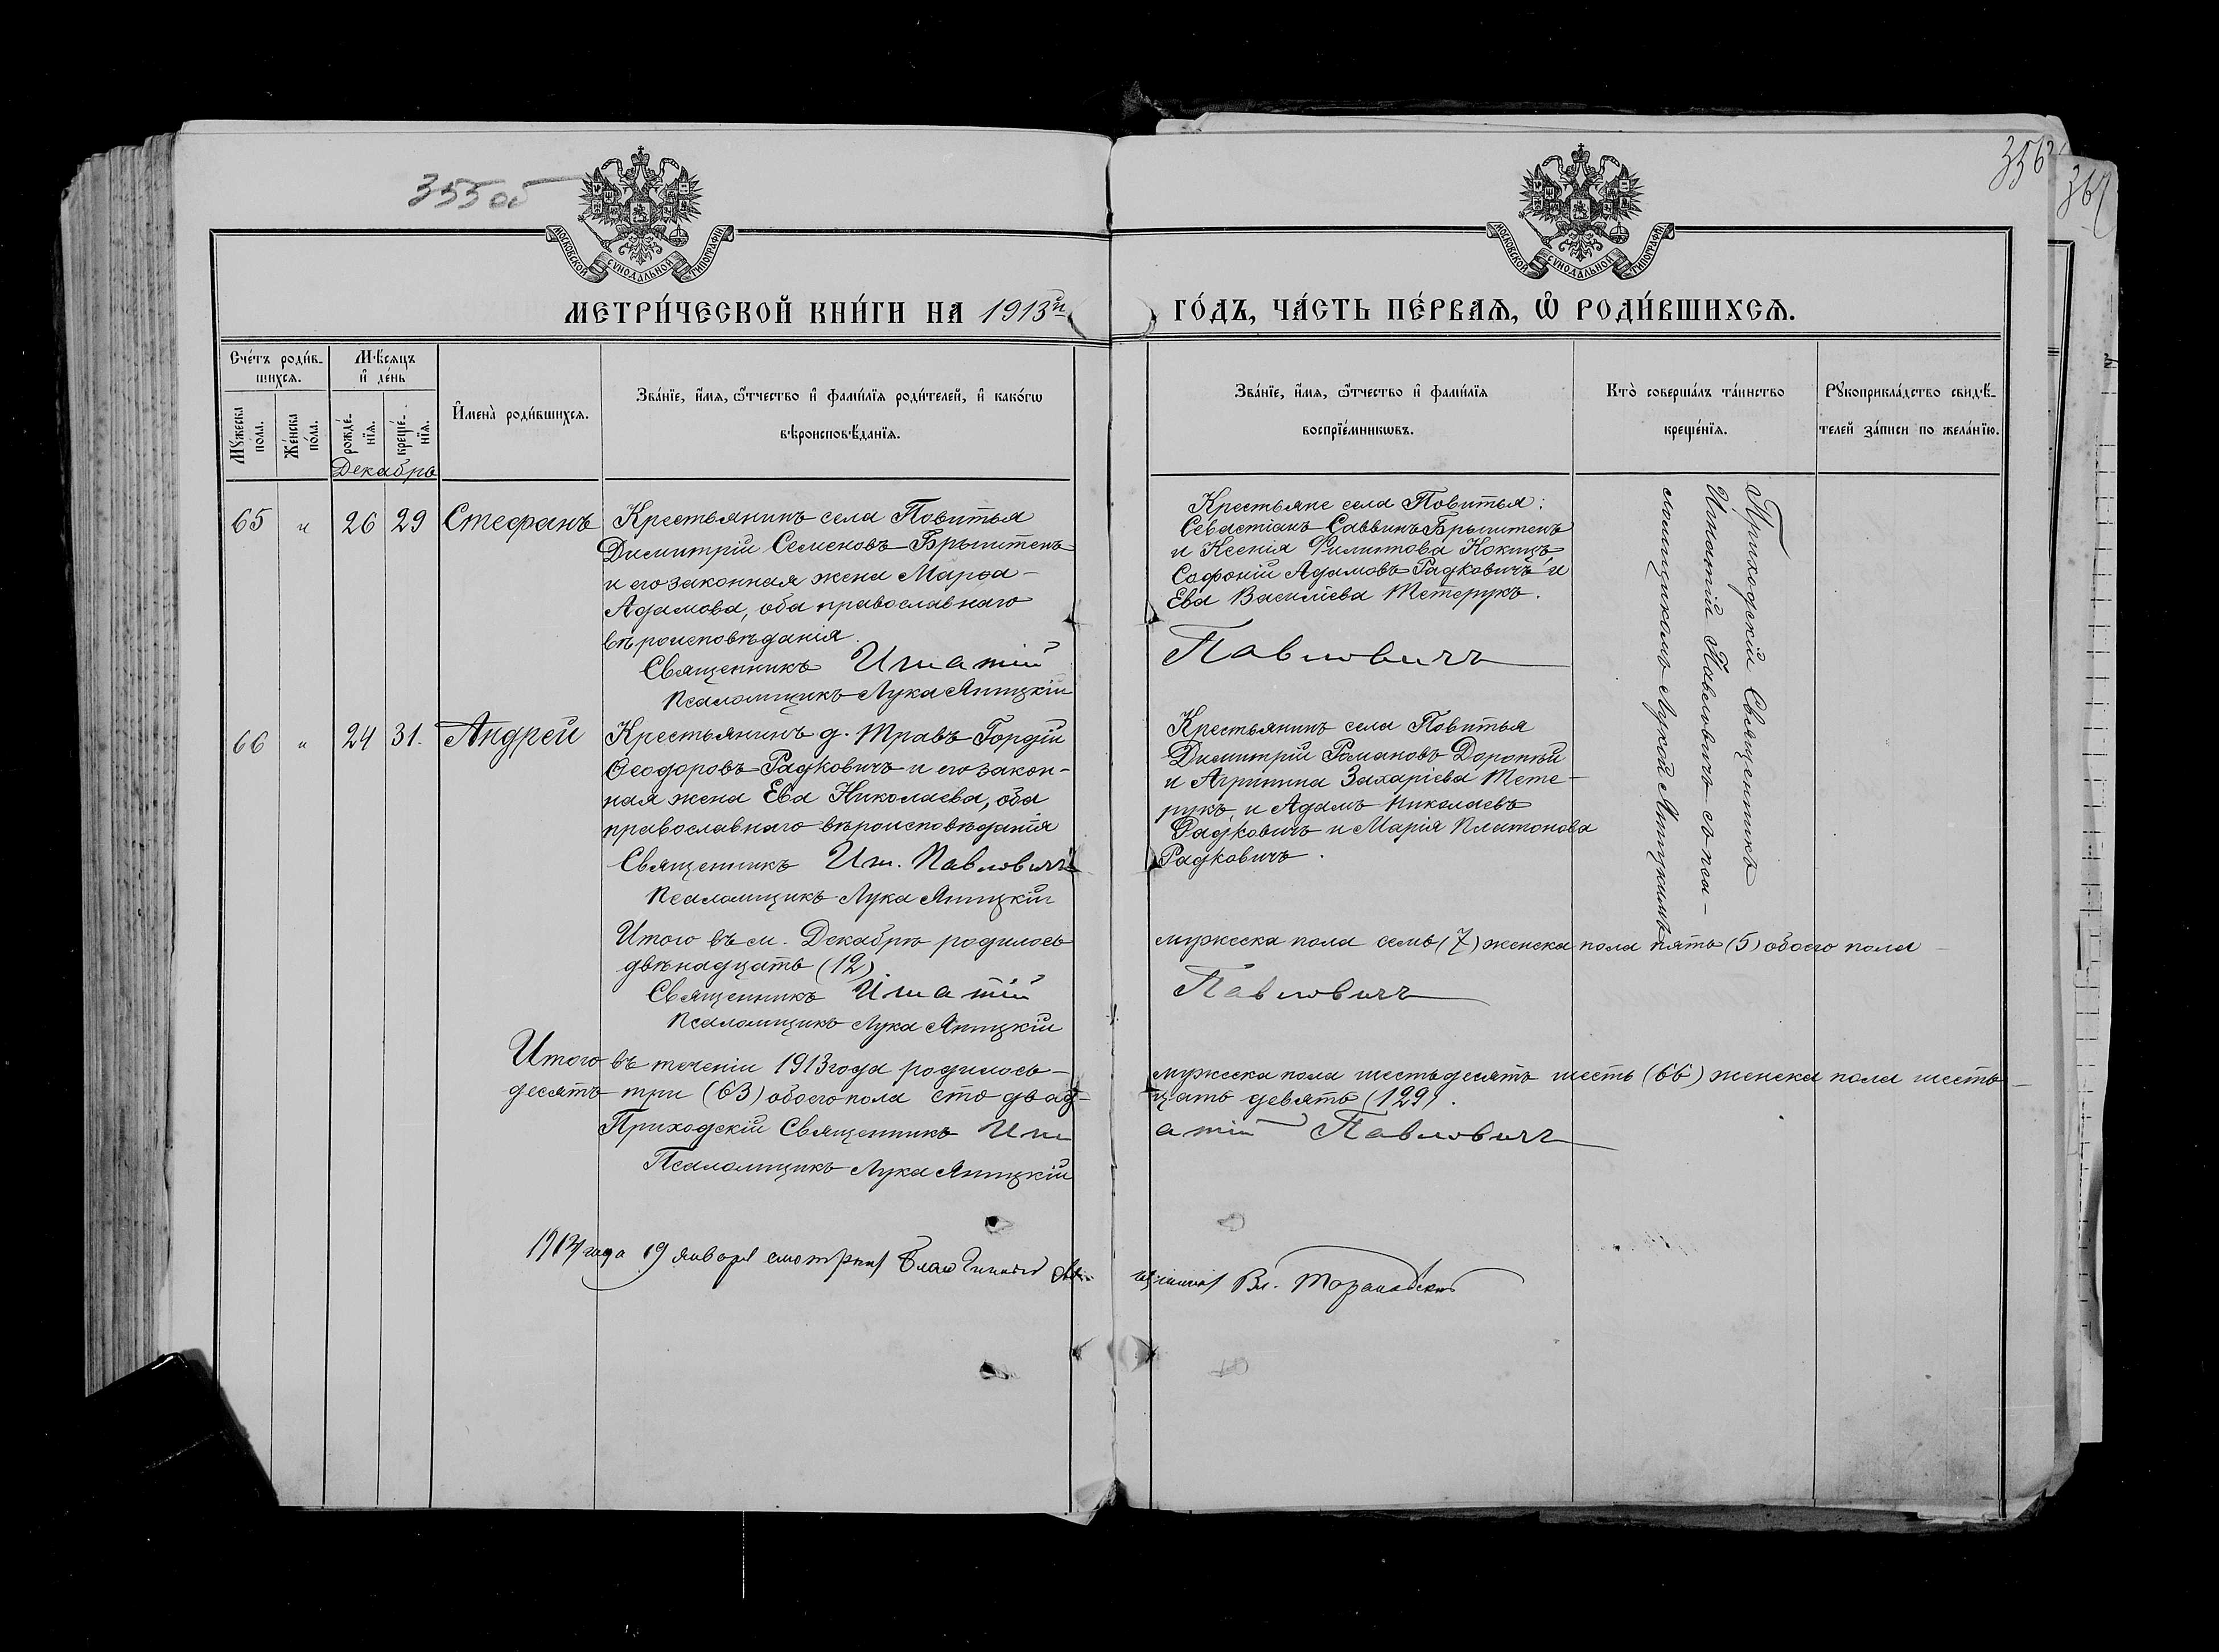 355 об
356
361
МОСКОВСКОЙ СѴНОДАЛЬНОЙ ТИПОГРАФІИ
МОСКОВСКОЙ СѴНОДАЛЬНОЙ ТИПОГРАФІИ
МЕТРИ́ЧЕСКОЙ КНИ́ГИ НА 1913й
ГО́ДЪ, ЧА́СТЬ ПЕ́РВАЯ, Ѽ РОДИ́ВШИХСЯ.
Сче́тъ роди́в-
шихся.
Мꙋжеска пола.
Же́нска по́ла.
Мѣ́сяцъ
и҆ де́нь
рожде́-
нїя.
креще́-
нїя.
Декабрь
И҆мена̀ роди́вшихся.
Зва́нїе, и҆́мя, ѻ҆́тчество и҆ фами́лїя роди́телей, и҆ како́гѡ
вѣроисповѣ́данїя.
Зва́нїе, и҆́мя, ѻ҆́тчество и҆ фами́лїя
воспрїе́мникѡвъ.
Кто̀ соверша́лъ та́инство
креще́нїя.
Рꙋкоприкла́дство свидѣ́-
телей за́писи по жела́нїю.
65 " 26 29 Стефанъ
Крестьянинъ села Повитья
Димитрій Семеновъ Брыштенъ
и его законная жена Марфа
Адамова, оба православнаго
вѣроисповѣданія.
Священникъ Игнатій
Псаломщикъ Лука Япицкій
Крестьяне села Повитья:
Севастіанъ Саввинъ Брыштенъ
и Ксенія Филиппова Кокицъ,
Софоній Адамовъ Радковичъ и
Ева Василіева Тетерукъ.
Павловичъ
Приходскій Священникъ
Игнатій Павловичъ съ пса-
ломщикомъ Лукой Япицкимъ
66 " 24 31. Андрей
Крестьянинъ д. Травъ Гордій
Ѳеодоровъ Радковичъ и его закон-
ная жена Ева Николаева, оба
православнаго вѣроисповѣданія
Священникъ Игн. Павловичъ
Псаломщикъ Лука Япицкій
Крестьянинъ села Повитья
Димитрій Романовъ Доропѣй
и Агрипина Захаріева Тете-
рукъ, и Адамъ Николаевъ
Радковичъ и Марія Платонова
Радковичъ.
Итого въ м. Декабрѣ родилось
мужеска пола семь (7) женска пола пять (5) обоего пола
двѣнадцать (12)
Священникъ Игнатій
Павловичъ
Псаломщикъ Лука Япицкій
Итого въ теченіи 1913 года родилось
мужеска пола шестьдесятъ шесть (66) женска пола шесть-
десятъ три (63) обоего пола сто двад-
цать девять (129).
Приходскій Священникъ Игн
атій Павловичъ
Псаломщикъ Лука Япицкій
1914 года 19 января смотрѣлъ Благочинный Свя-
щенникъ Вл.